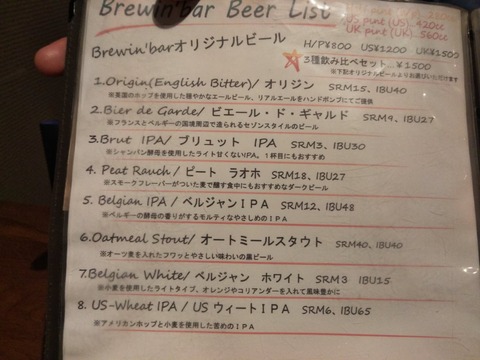 Brewin'bar Beer List
US pint (US). 420cc
UK pint (UK). 560cc
Brewin'barオリジナルビール H/P¥800 US¥1200 UK¥1500
3種飲み比べセット ¥1500
※下記オリジナルビールよりお選びいただけます
1.Origin(English Bitter)/ オリジン SRM15、IBU40
※英国のホップを使用した穏やかなエールビール、リアルエールをハンドポンプにてご提供
2.Bier de Garde/ ビエール・ド・ギャルド SRM9、IBU27
※フランスとベルギーの国境周辺で造られるセゾンスタイルのビール
3.Brut IPA/ ブリュット IPA SRM3、IBU30
※シャンパン酵母を使用したライト甘くないIPA。1杯目にもおすすめ
4. Peat Rauch/ ピート ラオホ SRM18、IBU27
※スモークフレーバーがついた麦で醸す食中にもおすすめなダークビール
5. Belgian IPA/ ベルジャンIPA SRM12、IBU48
※ベルギーの酵母の香りがするモルティなやさしめのIPA
6.Oatmeal Stout/ オートミールスタウト SRM40、IBU40
※オーツ麦を入れたフワッとやさしい味わいの黒ビール
7.Belgian White/ ベルジャン ホワイト SRM3 IBU15
※小麦を使用したライトタイプ、オレンジやコリアンダーを入れて風味豊かに
8. US-Wheat IPA / US ウィートIPA SRM6、IBU65
※アメリカンホップと小麦を使用した苦めのIPA